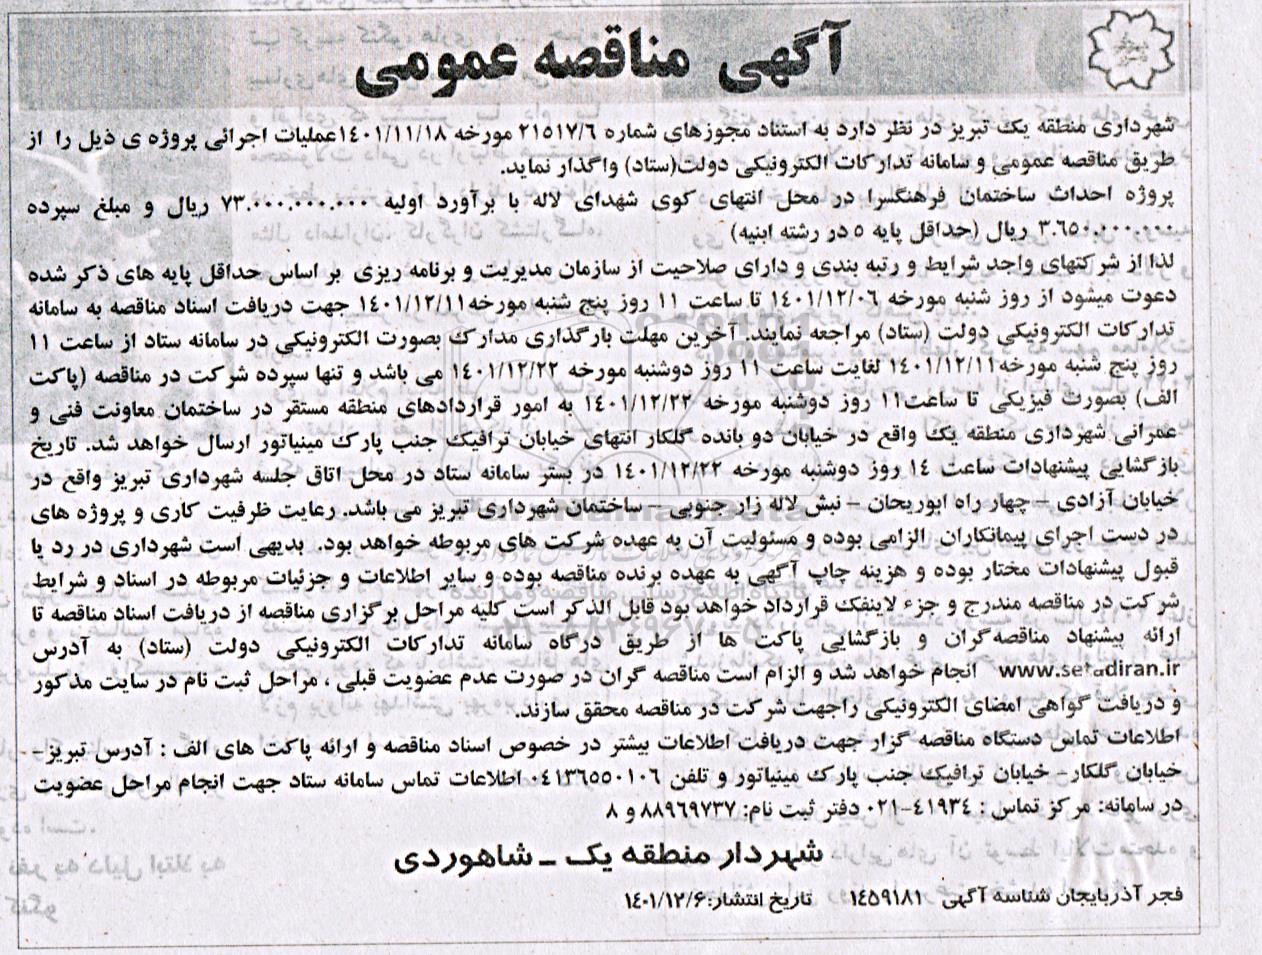 آگهی مناقصه عمومی
شهرداری منطقه یک تبریز در نظر دارد به استناد مجوزهای شماره ۲۱۵۱۷/۶ مورخه ۱۴۰۱/۱۱/۱۸عملیات اجرائی پروژه ی ذیل را از
طریق مناقصه عمومی و سامانه تدارکات الکترونیکی دولت(ستاد) واگذار نماید.
پروژه احداث ساختمان فرهنگسرا در محل انتهای کوی شهدای لاله با برآورد اولیه ۷۳.۰۰۰.۰۰۰.۰۰۰ ریال و مبلغ سپرده
۳.۶۵۰.۰۰۰.۰۰۰ ریال (حداقل پایه ۵ در رشته ابنیه)
لذا از شرکتهای واجد شرایط و رتبه بندی و دارای صلاحیت از سازمان مدیریت و برنامه ریزی بر اساس حداقل پایه های ذکر شده
دعوت میشود از روز شنبه مورخه ۱۴۰۱/۱۲/۰۶ تا ساعت ۱۱ روز پنج شنبه مورخه۱۴۰۱/۱۲/۱۱ جهت دریافت اسناد مناقصه به سامانه
تدارکات الکترونیکی دولت (ستاد) مراجعه نمایند. آخرین مهلت بارگذاری مدارک بصورت الکترونیکی در سامانه ستاد از ساعت ۱۱
روز پنج شنبه مورخه۱۴۰۱/۱۲/۱۱ لغایت ساعت ۱۱ روز دوشنبه مورخه ۱۴۰۱/۱۲/۲۲ می باشد و تنها سپرده شرکت در مناقصه (پاکت
الف) بصورت فیزیکی تا ساعت۱۱ روز دوشنبه مورخه ۱۴۰۱/۱۲/۲۲ به امور قراردادهای منطقه مستقر در ساختمان معاونت فنی و
عمرانی شهرداری منطقه یک واقع در خیابان دو بانده گلکار انتهای خیابان ترافیک جنب پارک مینیاتور ارسال خواهد شد. تاریخ
بازگشایی پیشنهادات ساعت ۱۴ روز دوشنبه مورخه ۱۴۰۱/۱۲/۲۲ در بستر سامانه ستاد در محل اتاق جلسه شهرداری تبریز واقع در
خیابان آزادی – چهار راه ابوریحان – نبش لاله زار جنوبی – ساختمان شهرداری تبریز می باشد. رعایت ظرفیت کاری و پروژه های
در دست اجرای پیمانکاران الزامی بوده و مسئولیت آن به عهده شرکت های مربوطه خواهد بود. بدیهی است شهرداری در رد یا
قبول پیشنهادات مختار بوده و هزینه چاپ آگهی به عهده برنده مناقصه بوده و سایر اطلاعات و جزئیات مربوطه در اسناد و شرایط
شرکت در مناقصه مندرج و جزء لاینفک قرارداد خواهد بود قابل الذکر است کلیه مراحل برگزاری مناقصه از دریافت اسناد مناقصه تا
ارائه پیشنهاد مناقصه‌گران و بازگشایی پاکت ها از طریق درگاه سامانه تدارکات الکترونیکی دولت (ستاد) به آدرس
www.setadiran.ir انجام خواهد شد و الزام است مناقصه گران در صورت عدم عضویت قبلی ، مراحل ثبت نام در سایت مذکور
و دریافت گواهی امضای الکترونیکی راجهت شرکت در مناقصه محقق سازند.
اطلاعات تماس دستگاه مناقصه گزار جهت دریافت اطلاعات بیشتر در خصوص اسناد مناقصه و ارائه پاکت های الف : آدرس تبریز-
خیابان گلکار- خیابان ترافیک جنب پارک مینیاتور و تلفن ۰۴۱۳۶۵۵۰۱۰۶ اطلاعات تماس سامانه ستاد جهت انجام مراحل عضویت
در سامانه: مرکز تماس : ۴۱۹۳۴-۰۲۱ دفتر ثبت نام: ۸۸۹۶۹۷۳۷ و ۸
شهردار منطقه یک – شاهوردی
فجر آذربایجان شناسه آگهی ۱۴۵۹۱۸۱ تاریخ انتشار:۱۴۰۱/۱۲/۶